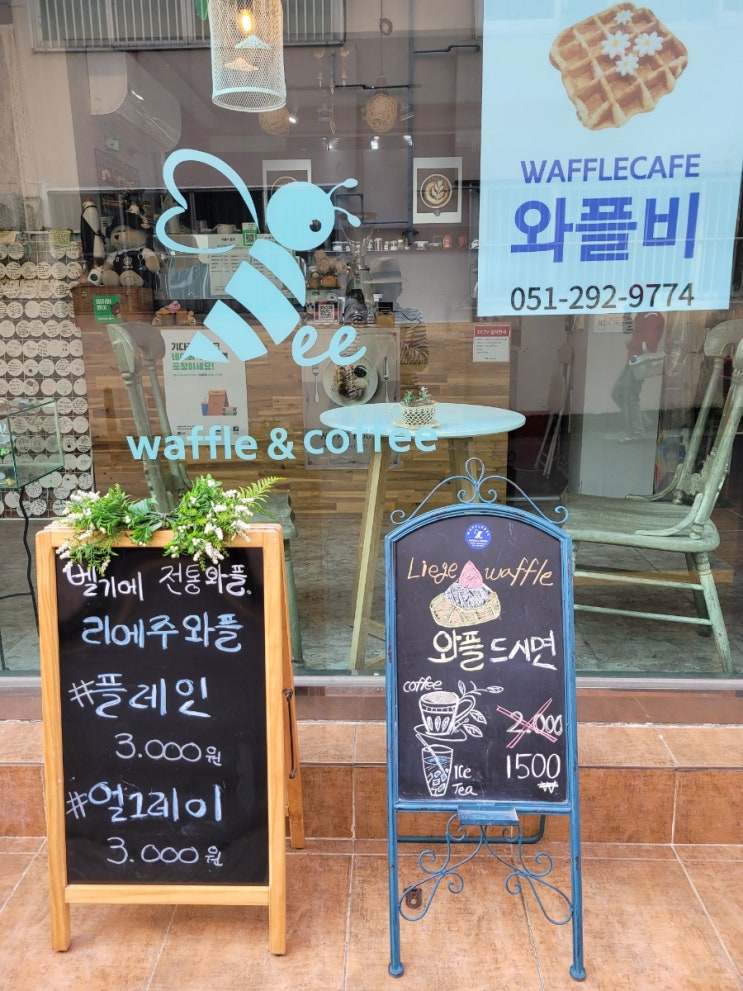 WAFFLECAFE
와플비
051-292-9774
Bee
waffle & coffee
CCTV
벨기에 전통와플.
리에주와플
#플레인
3.000원
#얼그레이
3.000원
Liege waffle
와플 드시면
coffee
2.000
Ice
Tea
1500
₩